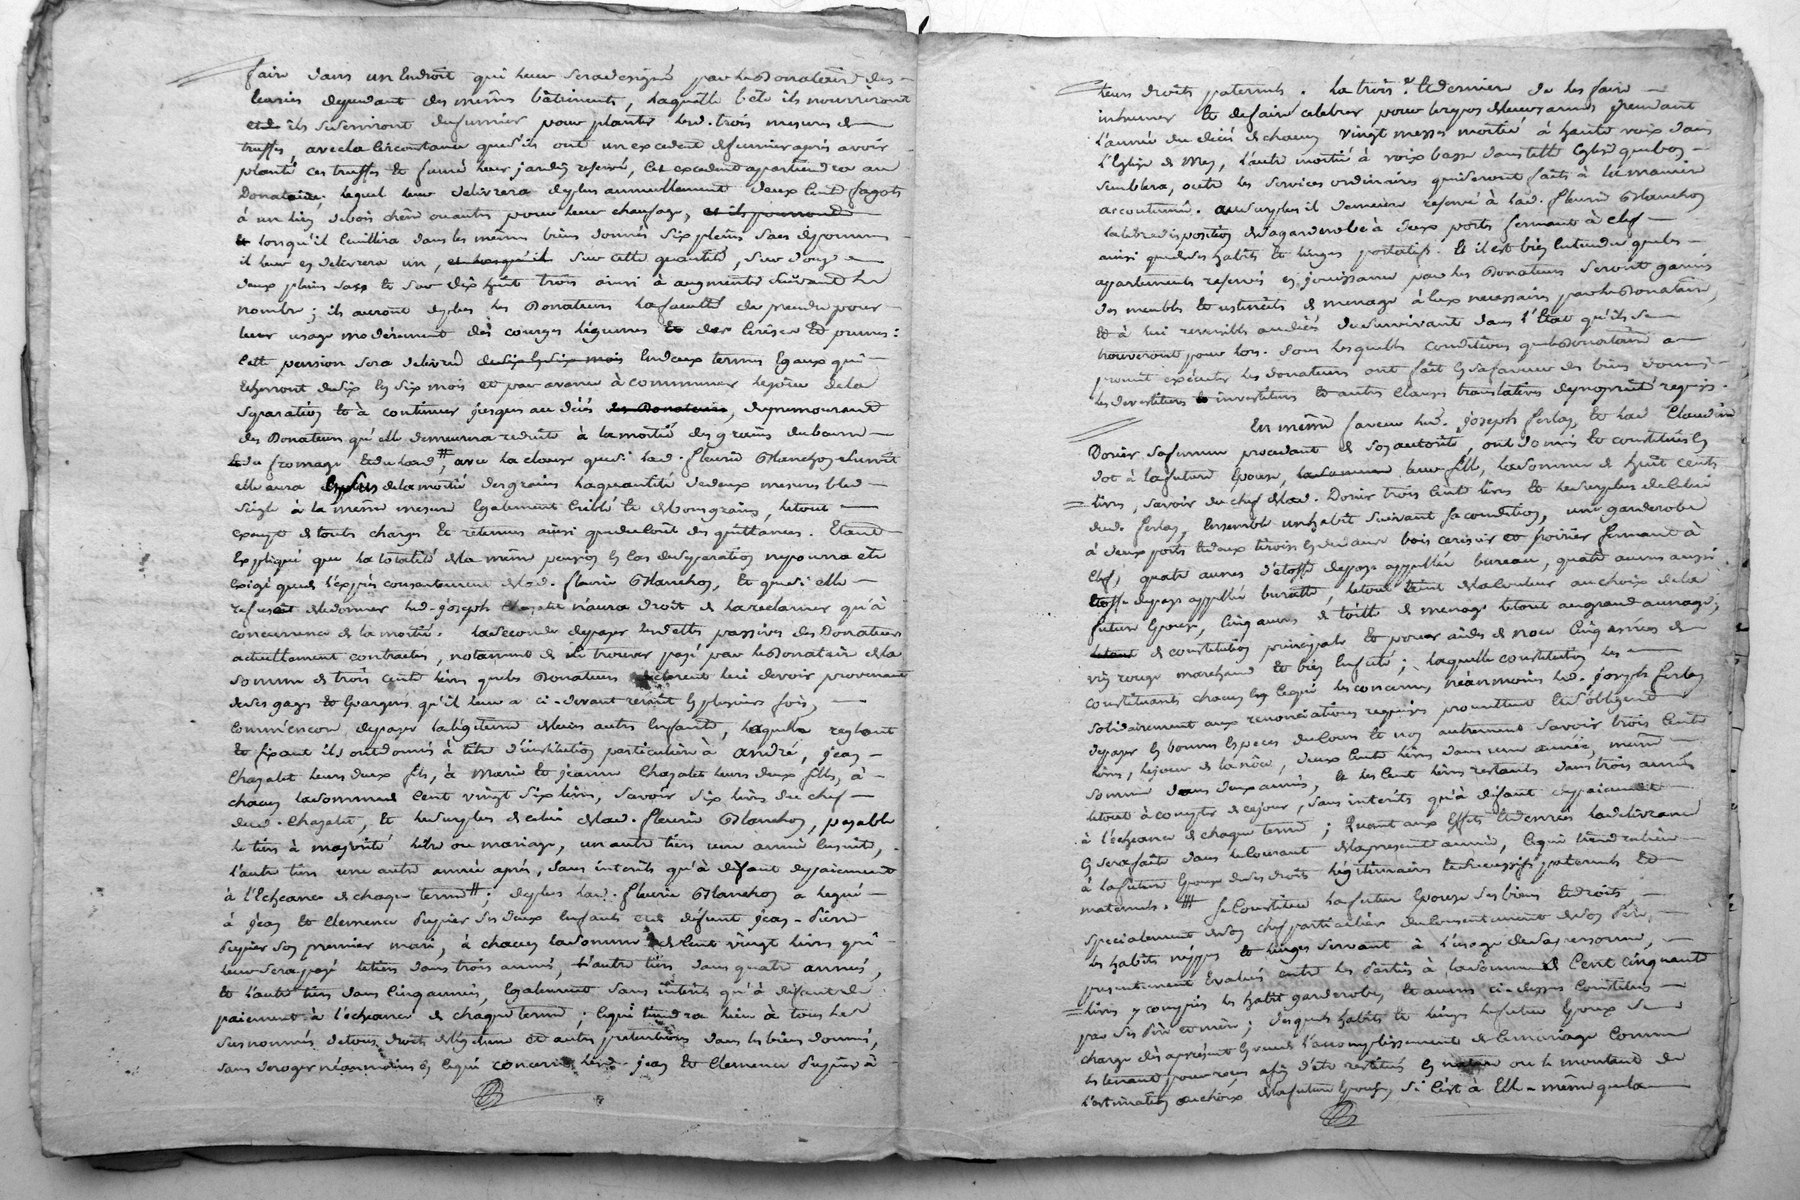 faire dans un Endroit qui leur sera designé par le Donataire des
Ecuries dependant des memes bâtiments, laquelle bête ils nourriront
et ils se serviront du fumier pour planter lesd. trois mesures de
truffes avec la circonstance que s'ils ont un excedent de fumier après avoir
planté ces truffes et fumé leur jardin reservé, cet excedent appartiendra au
Donataire, lequel leur delivrera de plus annuellement deux cent fagots
à un lien de bois chene ou autre pour leur chaufage, et ils pourront
et lorsqu'il cueillira dans les mêmes biens donnés six pleins sacs de pommes
il leur en delivrera un, et lorsqu'il sur cette quantité, sur douze
deux pleins sacs et sur dix huit trois ainsi à augmenter suivant le
nombre; ils auront de plus les Donateurs la faculté de prendre pour
leur usage moderément des courges légumes et des cerises et prunes:
Cette pension sera delivrée de six en six mois En deux termes Egaux qui
Echerront de six en six mois et par avance à commencer le jour de la
separation et à continuer jusques au décès des Donateurs, du premourant
des Donateurs qu'elle demeurera reduite à la moitié des grains du beurre
et du fromage et du lard #, avec la clause que si lad. fleurie Blanchon survit
elle aura de plus de la moitié des grains la quantité de deux mesures bled
seigle à la même mesure Egalement criblé et de bon grains, le tout
exempt de toutes charges et retenues ainsi que du coût des quittances. Etant
Expliqué que la totalité de la même pension en cas de separation ne pourra etre
Exigé que de l'exprès consentement de lad. fleurie Blanchon, Et que si elle
refusait de le donner led. joseph Chazalet n'aura droit de la reclamer qu'à
concurrence de la moitié. La seconde de payer les dettes passives des Donateurs
actuellement contractées, notamment de se trouver payé par le Donataire de la
somme de trois cent livres que les Donateurs declarent lui devoir provenant
de ses gages et Epargnes qu'il leur a ci-devant remit en plusieurs fois,
de payer la légitime de leurs autres Enfants, laquelle reglant
et fixant ils ont donnés à titre d'institution particulière à andré, jean
Chazalet leurs deux fils, à Marie et jeanne Chazalet leurs deux filles, à
chacun la somme de Cent vingt six livres, savoir six livres du chef
dud. Chazalet, et le surplus de celui de lad. fleurie Blanchon, payable
le tiers à majorité ou mariage, un autre tiers une année Ensuite,
l'autre tiers une autre année après, sans interets qu'à défaut de paiement
à l'Echeance de chaque terme #; de plus lad. fleurie Blanchon a legué
à jean et Clemence Peyrier ses deux Enfants et de defunt jean-Pierre
Peyrier son premier mari, à chacun la somme de Cent vingt livres qui
leur sera payé le tiers dans trois années, l'autre tiers dans quatre années,
et l'autre tiers dans Cinq années, Egalement sans interets qu'à défaut de
paiement à l'échéance de chaque terme; ce qui tiendra lieu à tous les
susnommés de tous droits de légitime et autres pretentions dans les biens donnés,
sans deroger néanmoins en ce qui concerne lesd. jean et Clemence Peyrier à
leurs droits paternels. La trois.e et derniere de les faire
inhumer et de faire celebrer pour le repos de leurs ames pendant
l'année du décès de chacun vingt messes moitié à haute voix dans
l'Eglise de Mey, l'autre moitié à voix basse dans telle Eglise que bon
semblera, outre les services ordinaires qui seront faits à la maniere
accoutumée. Au surplus il demeure reservé à lad. fleurie Blanchon
la libre disposition de sa garderobe à deux portes fermant à clef
ainsi que de ses habits et linges portatifs. Et il est bien Entendu que les
appartements reservés en jouissance par les Donateurs seront garnis
des meubles et ustencils de menage à Eux necessaires par le Donataire,
et à lui reversibles au décès du survivant dans l'Etat qu'ils se
trouveront pour lors. Sous lesquelles conditions que le Donataire a
promit exécuter les donateurs ont fait en sa faveur des biens donnés
les devestitures et investitures et autres clauses translatives de propriété requises.
En même faveur led. joseph ferlay et lad. Claudine
Dorier sa femme procedant de son autorité, ont donnés et constitués en
dot à la future Epouse, la somme leur fille, la somme de huit cents
livres, savoir du chef de lad. Dorier trois Cents livres et le surplus de celui
dud. ferlay, Ensemble un habit suivant sa condition, une garderobe
à deux portes et deux tiroirs en dedans bois cerisier et poirier fermant à
clef, quatre aunes d'étoffe de pays appellée bureau, quatre aunes aussi
Etoffe de pays appellée buratte, le tout teint de la couleur au choix de la
future Epouse, Cinq aunes de toille de menage le tout au grand aunage;
le tout de constitution principale et pour aides de noce Cinq années de
vin rouge marchand et bien Enfuté; laquelle constitution les
constituants chacun en ce qui les concerne, néanmoins led. joseph ferlay
solidairement aux renonciations requises promettent et s'obligent
de payer en bonnes Especes du Cours et non autrement savoir trois Cents
livres, le jour de la noce, deux Cents livres dans une année, même
somme dans deux années, et les Cent livres restants dans trois années
le tout à compter de ce jour, sans interets qu'à défaut de paiement
à l'échéance de chaque terme; Quant aux Effets et denrées la delivrance
en sera faite dans le Courant de la presente année, Ce qui tiendra lieu
à la future Epouse de ses droits légitimaires et successifs paternels et
maternels. # Se Constitue la future Epouse ses biens et droits
specialement de son chef particulier du consentement de son Père,
les habits nippes et linges servant à l'usage de sa personne,
presentement Evalués entre les Parties à la somme de Cent cinquante
livres y compris les habit garderobe, et aunes ci-dessus Constitués
par ses Père et mère; desquels habits et linges le futur Epoux se
charge dès apresent en vue de l'accomplissement de ce mariage Comme
les tenant pour reçus afin d'être restitués en nature ou le montant de
l'estimation au choix de la future Epouse, si c'est à Elle-même que la